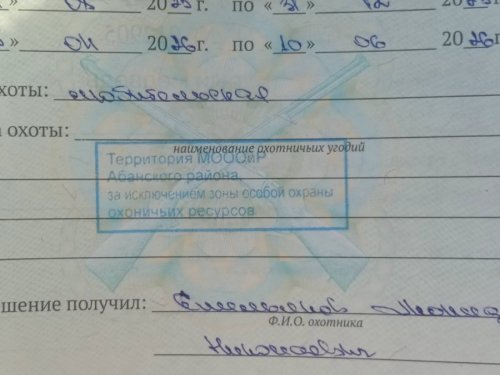 2025 г. по «31» 12 2025
» 04 2026 г. по «10» 06 2026 г
хоты: любительская
а охоты:
наименование охотничьих угодий
Территория МОООиР
Абанского района,
за исключением зоны особой охраны
охоничьих ресурсов
шение получил:
Ф.И.О. охотника
Николаевич